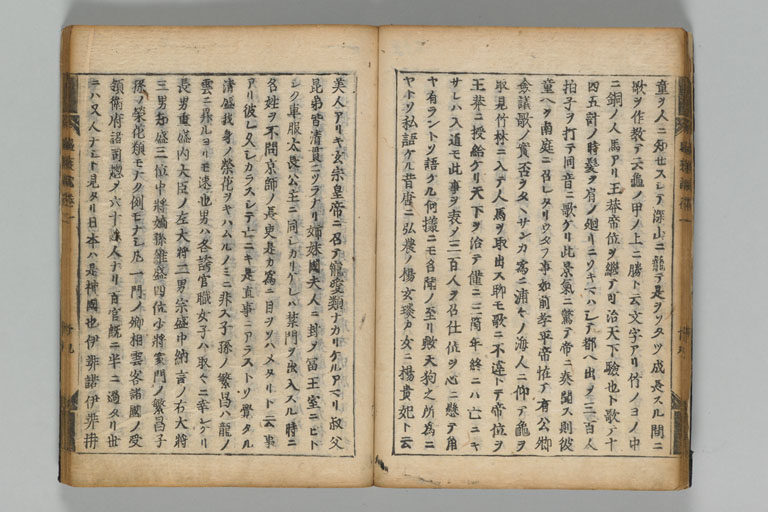 童ヲ人ニ知セスシテ深山ニ籠テ是ヲソタツ成長スル間ニ
歌ヲ作教テ云亀ノ甲ノ上ニ勝ト云文字アリ竹ノヨノ中
ニ銅ノ人馬アリ王莽帝位ヲ継テ可治天下驗也ト歌テ十
四五許ノ時髪ヲ肩ノ廻リニツキ ハシテ都ヘ出ヲ三百人
拍子ヲ打テ同音ニ歌ケリ此景氣ニ驚テ帝ニ奏聞ス則彼
童ヘヲ南庭ニ召レタリウタフ事如前孝平帝恠テ有公卿
僉議歌ノ實否ヲタヽサンカ爲ニ浦々ノ海人ニ仰テ亀ヲ
取見竹林ニ入テ人馬ヲ取出ス聊モ歌ニ不違トテ帝位ヲ
王莽ニ授給ケリ天下ヲ治テ僅ニ 箇年終ニハ亡ニキ
サレハ入道モ此事ヲ表ノ三百人ヲ召仕位ヲ心ニ懸テ角
ヤ有ラントソ語ケル何様ニモ 聞ノ至リ歟天狗之所爲ニ
ヤトソ私語ケル昔唐ニ弘農ノ楊玄琰カ女ニ楊貴妃ト云
美人アリキ玄宗皇帝ニ召テ寵愛類ナカリケルアマリ叔父
昆弟皆清貫ニツラナリ姉妹國夫人ニ封ノ冨王室ニヒト
シク車服太長公主ニ同シカリケレハ禁門ヲ出入スル時ニ
名姓ヲ不問京師ノ長吏是カ爲ニ目ヲソハメタリト云事
アリ彼レ久シカラスシテ亡ニキ是直事ニアラストソ覺タル
清盛我身ノ榮花ヲキハムルノミニ非ス子孫ノ繁昌ハ龍ノ
雲ニ昇ルヨリモ速也男ハ各誇官職女子ハ取々ニ幸シケリ
長男重盛内大臣ノ左大將二男宗盛中納言ノ右大將
三男知盛三位中將嫡孫維盛四位少將家門ノ繁昌子
孫ノ榮花類モナク例モナシ凡一門ノ卿相雲客諸國ノ受
領衛府諸司惣ノ六十餘人ナリ百官既ニ半ニ過タリ世
ニハ又人ナシトソ見タリ日本ハ是神國也伊弉諾伊弉冉